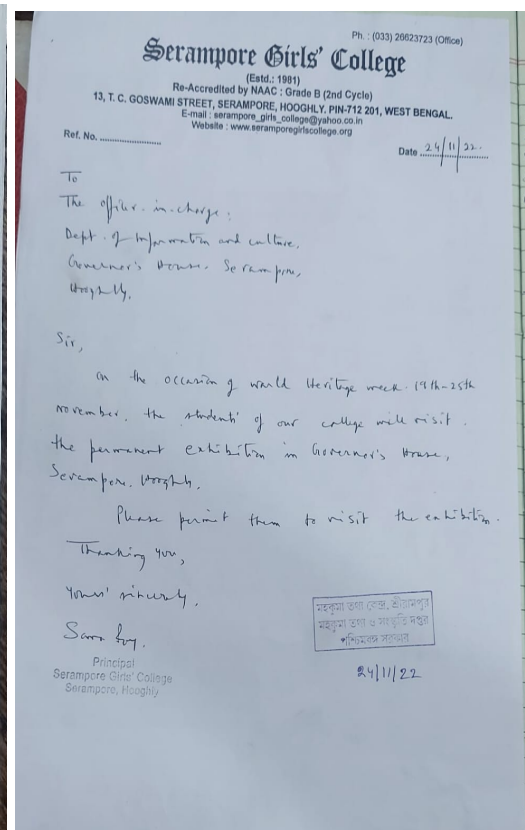 Ph. : (033) 26623723 (Office)
Serampore Girls' College
(Estd.: 1981)
Re-Accredited by NAAC : Grade B (2nd Cycle)
13, T. C. GOSWAMI STREET, SERAMPORE, HOOGHLY. PIN-712 201, WEST BENGAL.
E-mail : serampore_girls_college@yahoo.co.in
Website : www.seramporegirlscollege.org
Ref. No. ......................
Date 24/11/22.
To
The officer-in-charge,
Dept. of Information and culture,
Governor's House. Serampore,
Hooghly.
Sir,
On the occasion of World Heritage week. 19th-25th
November. the students of our college will visit.
the permanent exhibition in Governor's House,
Serampore. Hooghly.
Please permit them to visit the exhibition.
Thanking you,
Yours' sincerely.
Principal
Serampore Girls' College
Serampore, Hooghly
মহকুমা তথ্য কেন্দ্র, শ্রীরামপুর
মহকুমা তথ্য ও সংস্কৃতি দপ্তর
পশ্চিমবঙ্গ সরকার
24/11/22